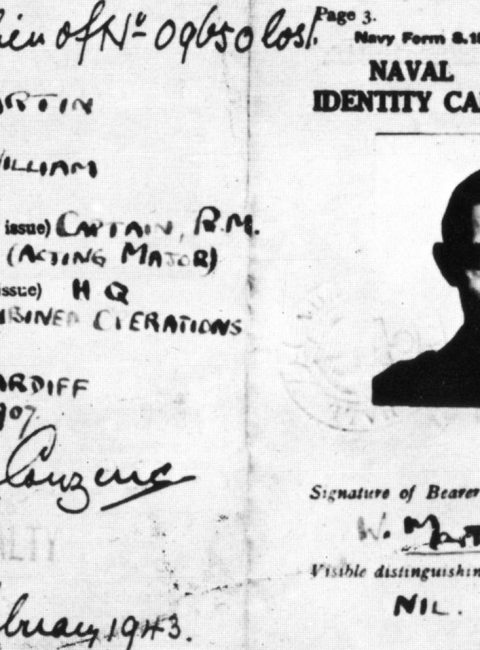 lieu of Nº 09650 lost.
ARTIN
WILLIAM
issue) CAPTAIN, R.M.
(ACTING MAJOR)
issue) H Q
MBINED OPERATIONS
ARDIFF
1907.
February 1943.
Page 3.
Navy Form S.
NAVAL
IDENTITY CA
Signature of Bearer
W. Mart
Visible distinguishin
NIL.